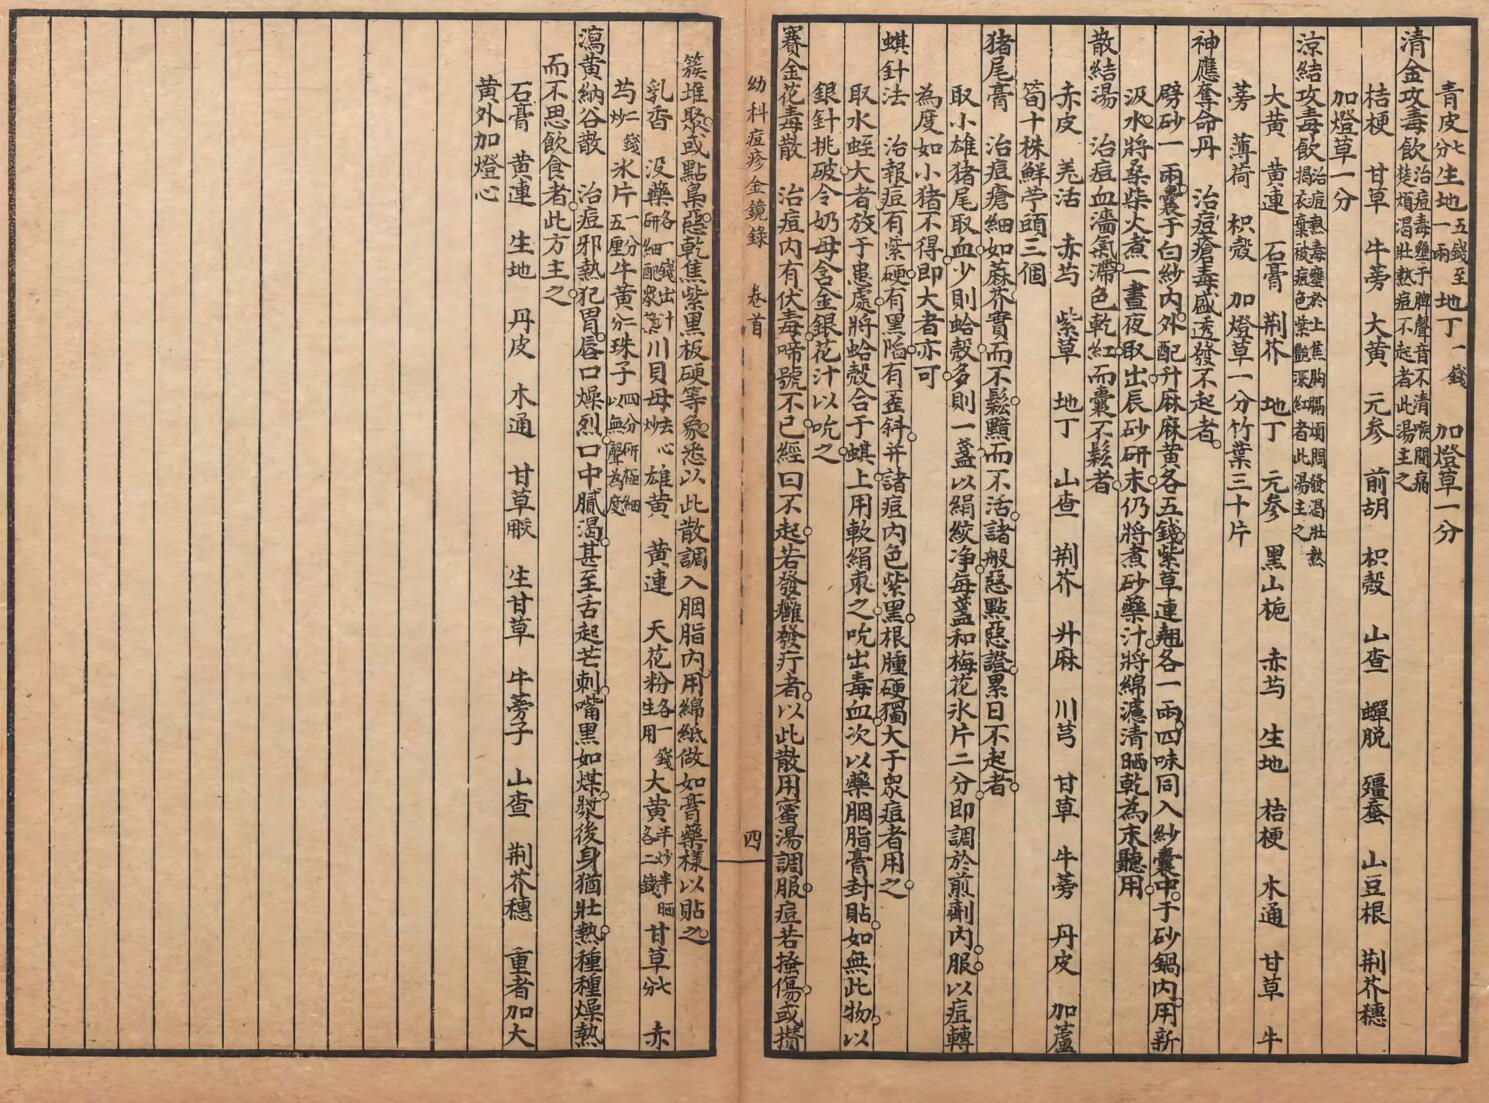 青皮七分生地五錢至一兩地丁一錢 加燈草一分
清金攻毒飲治痘毒壅于脾聲音不清喉間痛楚煩渴壯熱痘不起者此湯主之
桔梗 甘草 牛蒡 大黄 元參 前胡 枳殼 山查 蟬脫 殭蚕 山豆根 荆芥穗
加燈草一分
涼結攻毒飲治痘熱毒壅於上焦胸膈煩悶發渴壯熱揭衣棄被痘色艷深紅者此湯主之
大黄 黄連 石膏 荆芥 地丁 元參 黑山梔 赤芍 生地 桔梗 木通 甘草 牛
蒡 薄荷 枳殼 加燈草一分竹葉三十片
神應奪命丹 治痘瘡毒盛透發不起者
劈砂一兩囊于白紗内外配升麻麻黄各五錢紫草連翹各一兩四味同入紗囊中于砂鍋内用新
汲水將桑柴火煮一晝夜取出辰砂研末仍將煮砂藥汁將綿濾清晒乾為末聽用
散結湯 治痘血濇氣滯色乾紅而囊不鬆者
赤皮 羌活 赤芍 紫草 地丁 山查 荆芥 升麻 川芎 甘草 牛蒡 丹皮 加蘆
筍十株鮮苧頭三個
猪尾膏 治痘瘡細如蔴芥實而不鬆黯而不活諸般惡點惡證累日不起者
取小雄猪尾取血少則蛤殼多則一盞以絹絞净每盞和梅花氷片二分即調於煎劑内服以痘轉
為度如小猪不得即大者亦可
蜞針法 治報痘有紫硬有黑陷有歪斜并諸痘内色紫黑根腫硬獨大于衆痘者用之
取水蛭大者放于患處將蛤殼合于蜞上用軟絹束之吮出毒血次以藥胭脂膏封貼如無此物以
銀針挑破令奶母含金銀花汁以吮之
賽金花毒散 治痘内有伏毒啼號不已經曰不起若發癰發疔者以此散用蜜湯調服痘若搔傷或攢
幼科痘疹金鏡錄 卷首 四
簇堆聚或點梟惡乾焦紫黑板硬等象悉以此散調入胭脂内用綿紙做如膏藥樣以貼之
乳香 没藥各一錢出汁研細 川貝母去心炒 雄黄 黄連 天花粉各一錢生用 大黄半炒半晒各二錢 甘草七分 赤
芍二錢炒氷片一分五厘牛黄二分珠子四分研極細以無聲為度
瀉黄納谷散 治痘邪熱犯胃唇口燥烈口中膩渴甚至舌起芒刺嘴黑如煤漿後身猶壯熱種種燥熱
而不思飲食者此方主之
石膏 黄連 生地 丹皮 木通 甘草 生甘草 牛蒡子 山查 荆芥穗 重者加大
黄外加燈心